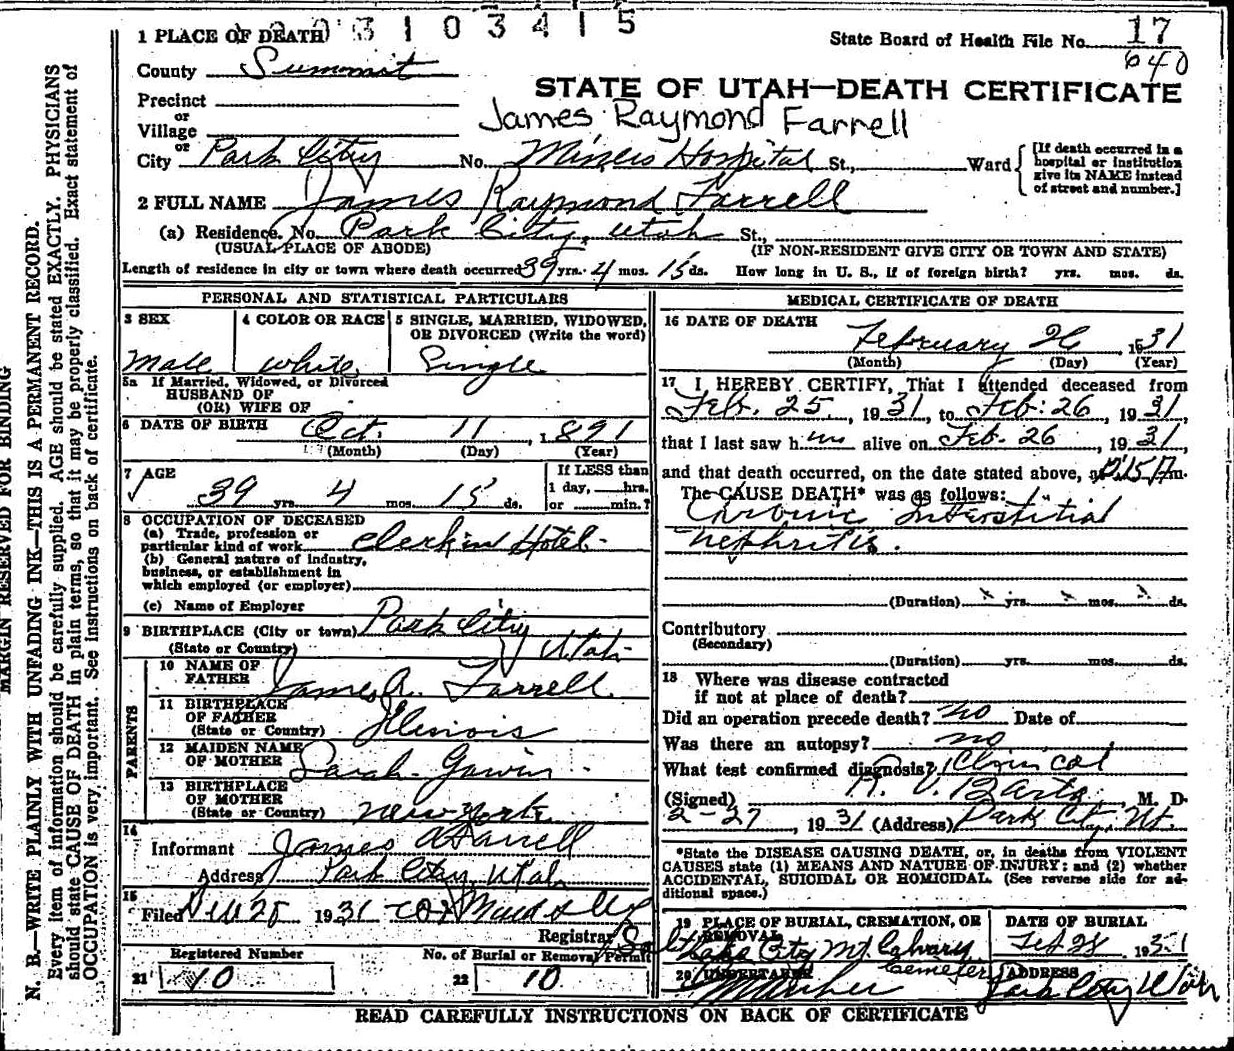 3 1 0 3 4 1 5
1 PLACE OF DEATH
State Board of Health File No. 17
640
County Summit
STATE OF UTAH—DEATH CERTIFICATE
Precinct
or
James Raymond Farrell
Village
or
City Park City No. Miners Hospital St., Ward
[If death occurred in a hospital or institution give its NAME instead of street and number.]
2 FULL NAME James Raymond Farrell
(a) Residence. No. Park City, Utah St.,
(USUAL PLACE OF ABODE) (IF NON-RESIDENT GIVE CITY OR TOWN AND STATE)
Length of residence in city or town where death occurred 39 yrs. 4 mos. 15 ds. How long in U. S., if of foreign birth? yrs. mos. ds.
PERSONAL AND STATISTICAL PARTICULARS
3 SEX
Male
4 COLOR OR RACE
white
5 SINGLE, MARRIED, WIDOWED,
OR DIVORCED (Write the word)
Single
5a If Married, Widowed, or Divorced
HUSBAND OF
(OR) WIFE OF
6 DATE OF BIRTH Oct. 11, 1891
(Month) (Day) (Year)
7 AGE
39 yrs. 4 mos. 15 ds.
If LESS than
1 day, hrs.
or min.?
8 OCCUPATION OF DECEASED
(a) Trade, profession or
particular kind of work Clerk in Hotel
(b) General nature of industry,
business, or establishment in
which employed (or employer)
(c) Name of Employer
9 BIRTHPLACE (City or town) Park City
(State or Country) Utah
PARENTS
10 NAME OF
FATHER James A. Farrell
11 BIRTHPLACE
OF FATHER
(State or Country) Illinois
12 MAIDEN NAME
OF MOTHER Sarah Gavin
13 BIRTHPLACE
OF MOTHER
(State or Country) New York
14
Informant James A Farrell
Address Park City, Utah
15
Filed 1931
Registrar
Registered Number
21 10
No. of Burial or Removal Permit
22 10
MEDICAL CERTIFICATE OF DEATH
16 DATE OF DEATH
February 26, 1931
(Month) (Day) (Year)
17 I HEREBY CERTIFY, That I attended deceased from
Feb. 25, 1931, to Feb. 26, 1931,
that I last saw him alive on Feb. 26, 1931
and that death occurred, on the date stated above, at m.
The CAUSE DEATH* was as follows:
Chronic Interstitial
Nephritis.
(Duration) yrs. mos. ds.
Contributory
(Secondary)
(Duration) yrs. mos. ds.
18 Where was disease contracted
if not at place of death?
Did an operation precede death? no Date of
Was there an autopsy? no
What test confirmed diagnosis? Clinical
(Signed) M. D.
2-27, 1931 (Address) Park City, Ut.
*State the DISEASE CAUSING DEATH, or, in deaths from VIOLENT
CAUSES state (1) MEANS AND NATURE OF INJURY; and (2) whether
ACCIDENTAL, SUICIDAL OR HOMICIDAL. (See reverse side for ad-
ditional space.)
19 PLACE OF BURIAL, CREMATION, OR
REMOVAL
Salt Lake City Mt Calvary
Cemetery
DATE OF BURIAL
Feb 28, 1931
20 UNDERTAKER
ADDRESS
Park City Utah
READ CAREFULLY INSTRUCTIONS ON BACK OF CERTIFICATE
MARGIN RESERVED FOR BINDING
N. B.—WRITE PLAINLY WITH UNFADING INK—THIS IS A PERMANENT RECORD.
Every item of information should be carefully supplied. AGE should be stated EXACTLY. PHYSICIANS
should state CAUSE OF DEATH in plain terms, so that it may be properly classified. Exact statement of
OCCUPATION is very important. See instructions on back of certificate.